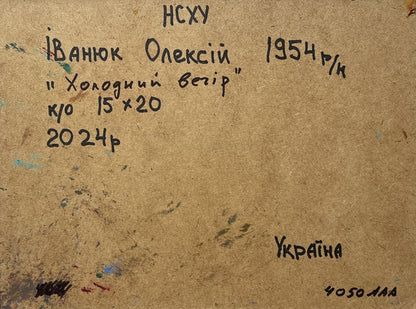 НСХУ
Іванюк Олексій 1954 р/н
"Холодний вечір"
к/о 15×20
2024р
Україна
4050ААА